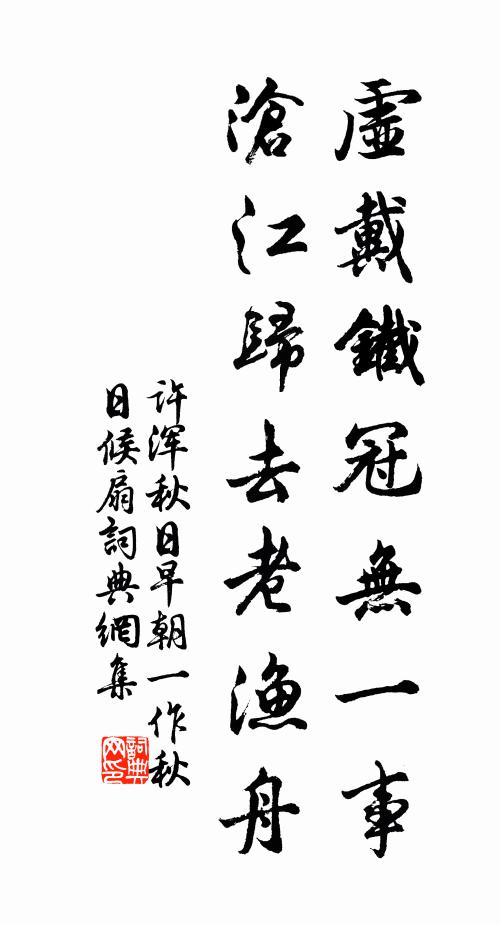 虛戴鐵冠無一事
滄江歸去老漁舟
许浑秋日早朝一作秋
日候扇詞典網集
詞典
网印